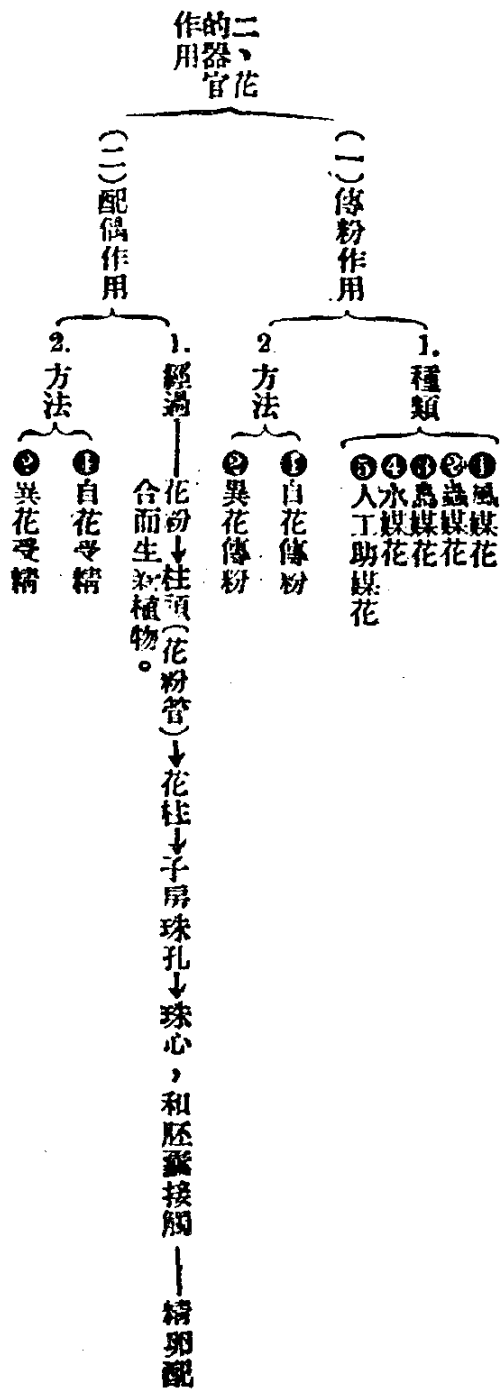 二、花
的器官
作用
(一)傳粉作用
1.種類
❶風媒花
❷蟲媒花
❸鳥媒花
❹水媒花
❺人工助媒花
2.方法
❶自花傳粉
❷異花傳粉
(二)配偶作用
1.經過——花粉→柱頭(花粉管)→花柱→子房珠孔→珠心,和胚囊接觸——精卵配
合而生新植物。
2.方法
❶自花受精
❷異花受精